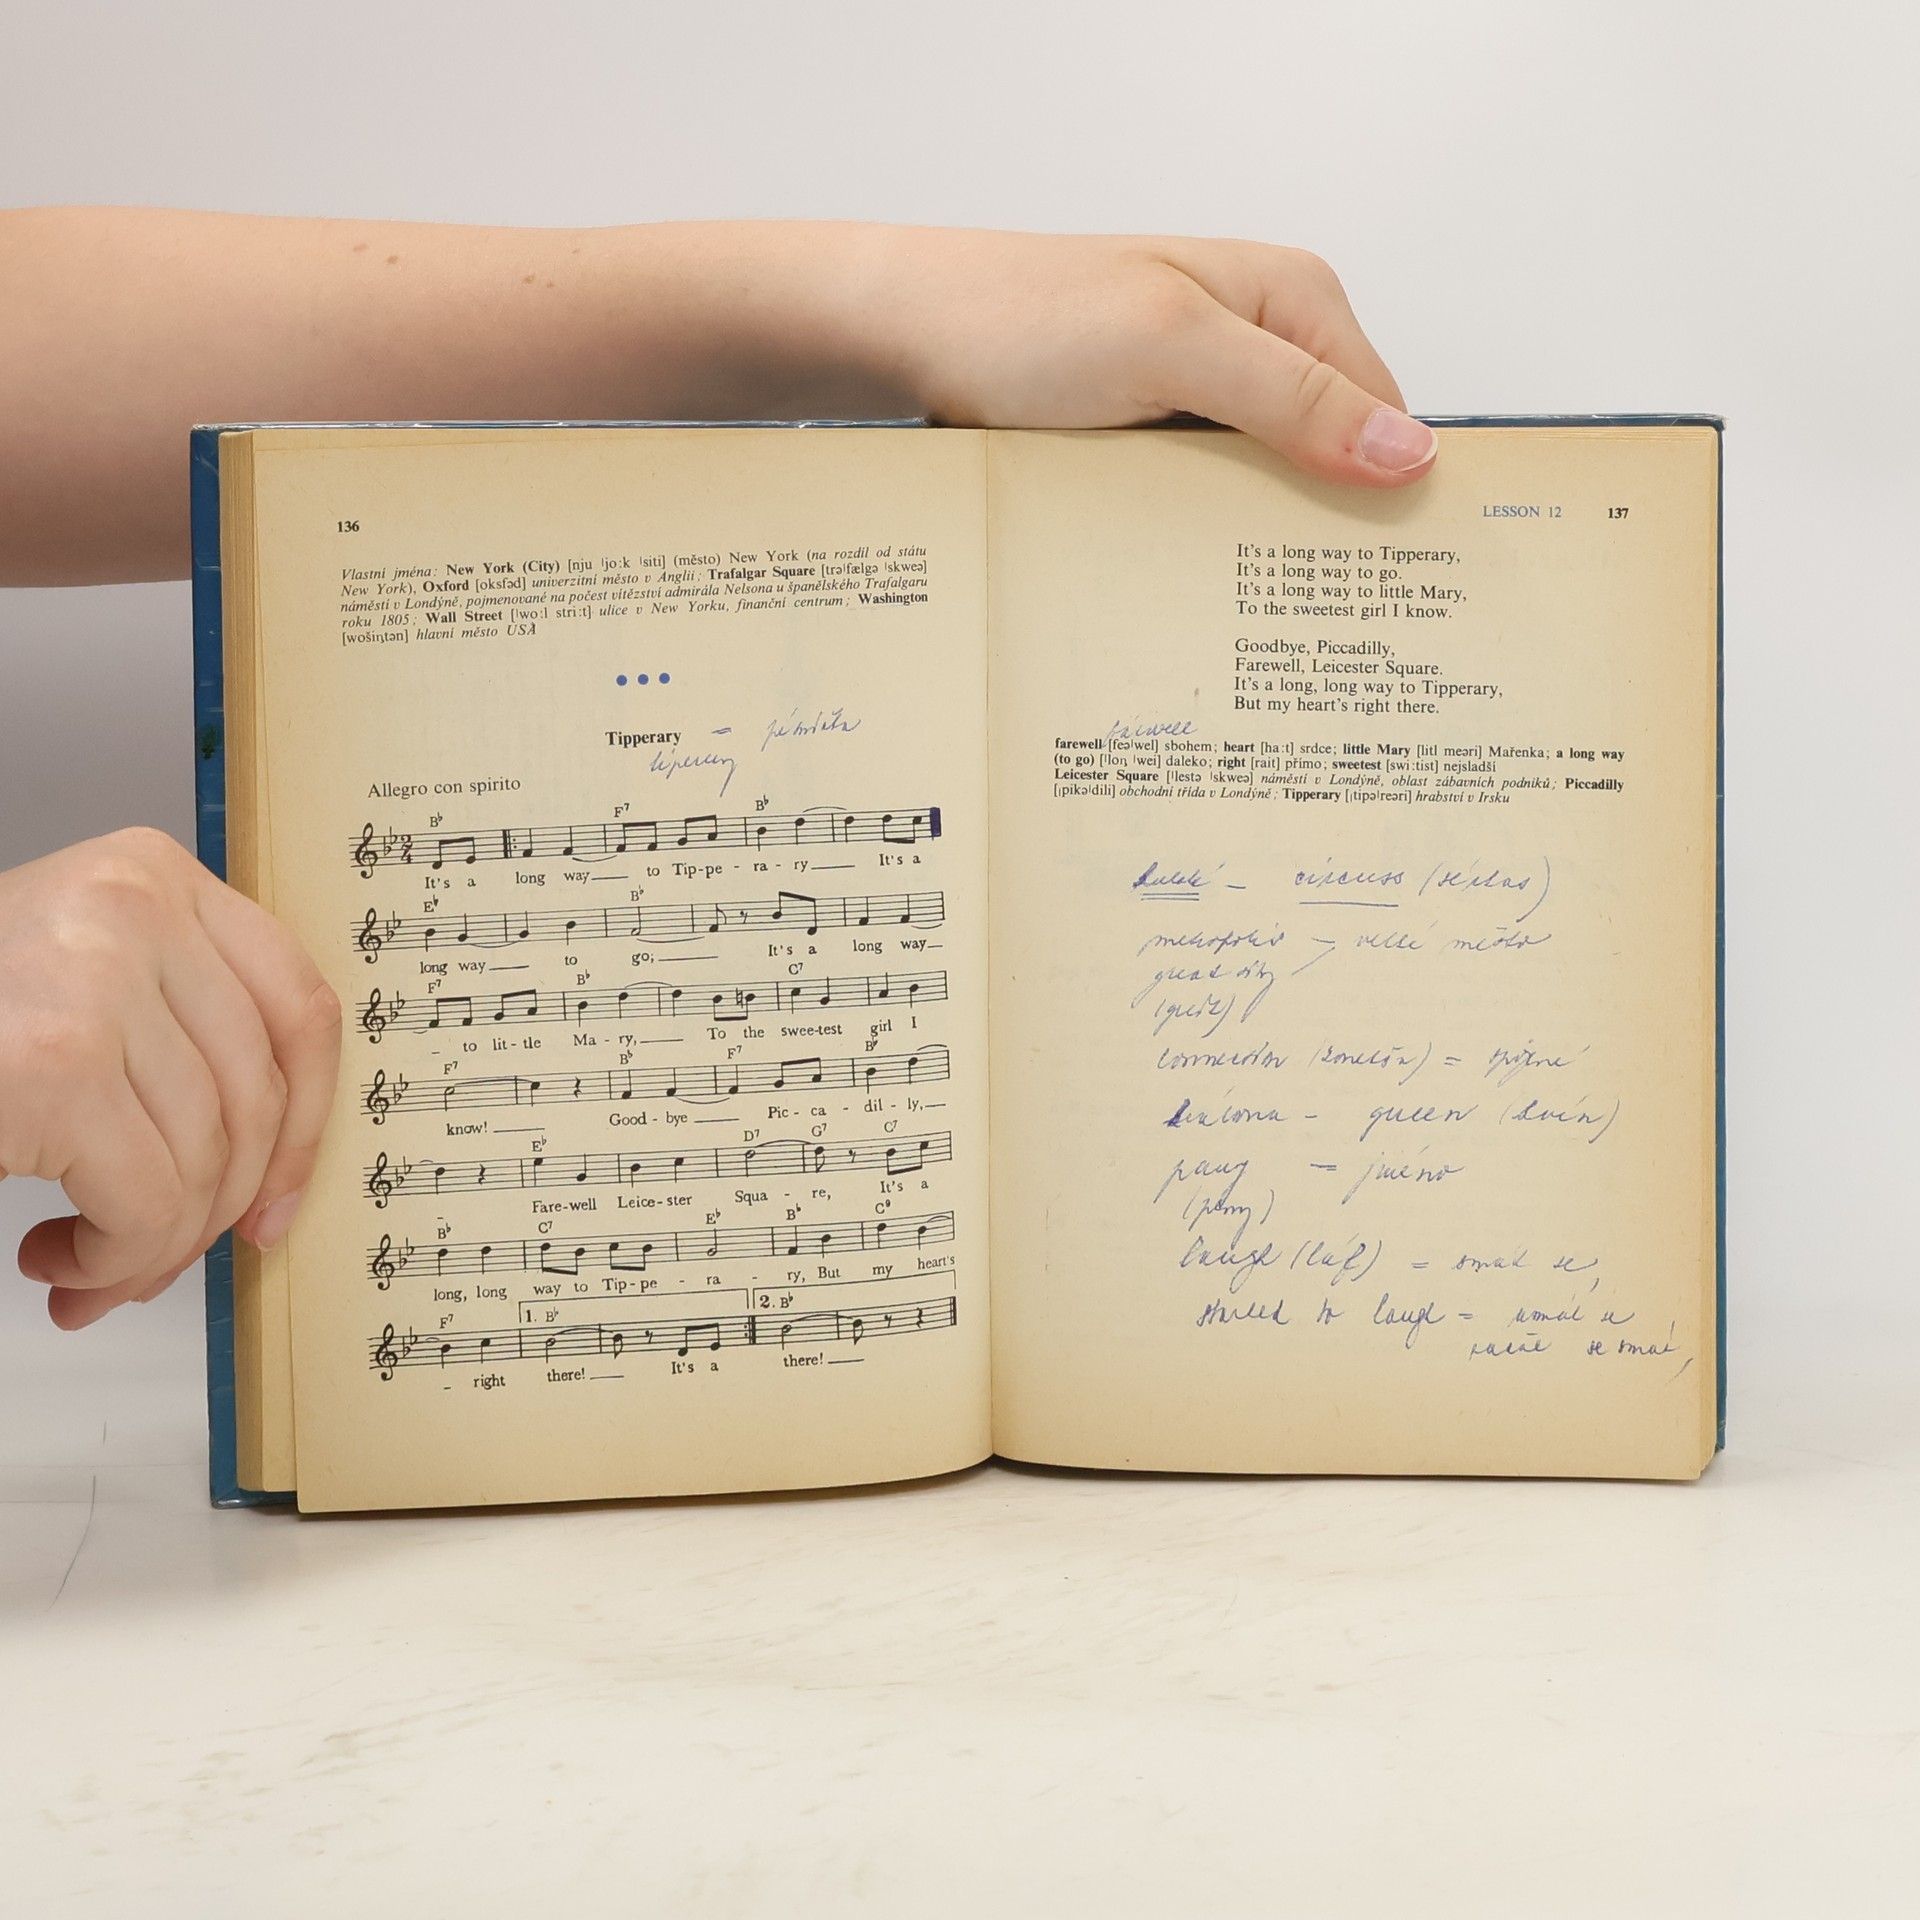 136
Vlastní jména: New York (City) [nju ˈjoːk ˈsiti] (město) New York (na rozdíl od státu
New York), Oxford [oksfəd] univerzitní město v Anglii; Trafalgar Square [trəˈfælgə ˈskweə]
náměstí v Londýně, pojmenované na počest vítězství admirála Nelsona u španělského Trafalgaru
roku 1805; Wall Street [ˈwoːl striːt] ulice v New Yorku, finanční centrum; Washington
[wošiŋtən] hlavní město USA
Tipperary =
tiperery
Allegro con spirito
B♭ F7 B♭
2 4
It's a long way to Tip-pe - ra - ry It's a
E♭ B♭
long way to go; It's a long way
F7 B♭ C7
to lit - tle Ma - ry, To the swee-test girl I
F7 B♭ F7 B♭
know! Good - bye Pic - ca - dil - ly,
E♭ D7 G7 C7
Fare-well Leice-ster Squa - re, It's a
B♭ C7 E♭ B♭ C9
long, long way to Tip-pe - ra - ry, But my heart's
F7 1. B♭ 2. B♭
right there! It's a there!
LESSON 12 137
It's a long way to Tipperary,
It's a long way to go.
It's a long way to little Mary,
To the sweetest girl I know.
Goodbye, Piccadilly,
Farewell, Leicester Square.
It's a long, long way to Tipperary,
But my heart's right there.
farewell [feəˈwel] sbohem; heart [haːt] srdce; little Mary [litl meəri] Mařenka; a long way
(to go) [ˈloŋ ˈwei] daleko; right [rait] přímo; sweetest [swiːtist] nejsladší
Leicester Square [ˈlestə ˈskweə] náměstí v Londýně, oblast zábavních podniků; Piccadilly
[ˌpikəˈdili] obchodní třída v Londýně; Tipperary [ˌtipəˈreəri] hrabství v Irsku
– circuss
metropolis – velké město
great city
connection =
královna – queen (kvín)
= jméno
laugh (láf) = smát se,
started to laugh =
začal se smát,